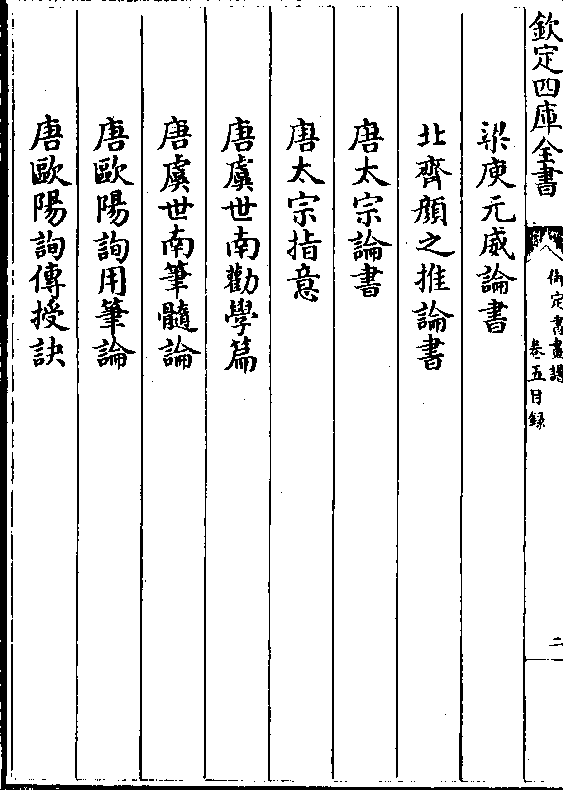 欽定四庫全書
御定書畫譜
卷五目録
二
梁庾元威論書
北齊顔之推論書
唐太宗論書
唐太宗指意
唐虞世南勸學篇
唐虞世南筆髓論
唐歐陽詢用筆論
唐歐陽詢傳授訣